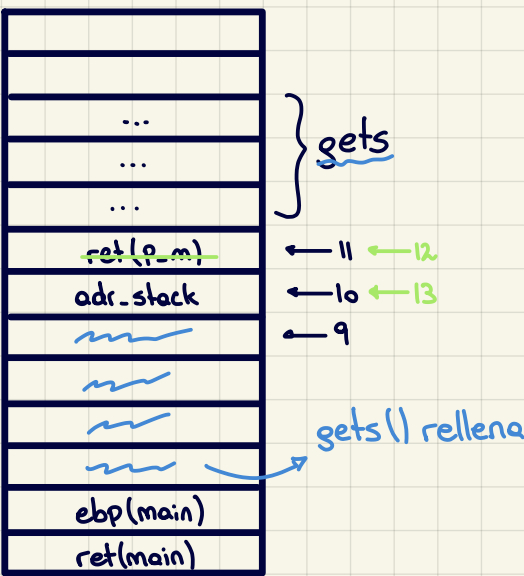 ...
...
gets
...
ret(p_m) 11 12
adr_stack 10 13
9
gets() rellena
ebp(main)
ret(main)